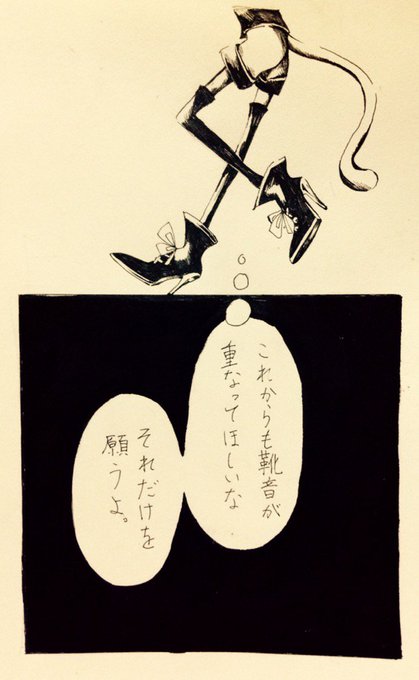 これからも靴音が
重なってほしいな
それだけを
願うよ。